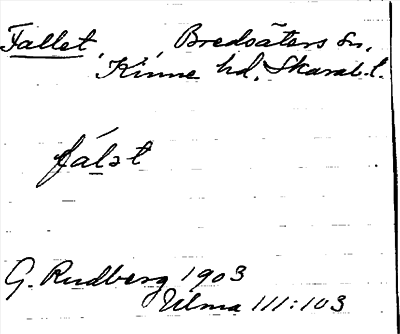 Fallet, Bredsäters sn,
Kinne hd, Skarab. l.
fálət
G. Rudberg 1903
Ulma 111:103